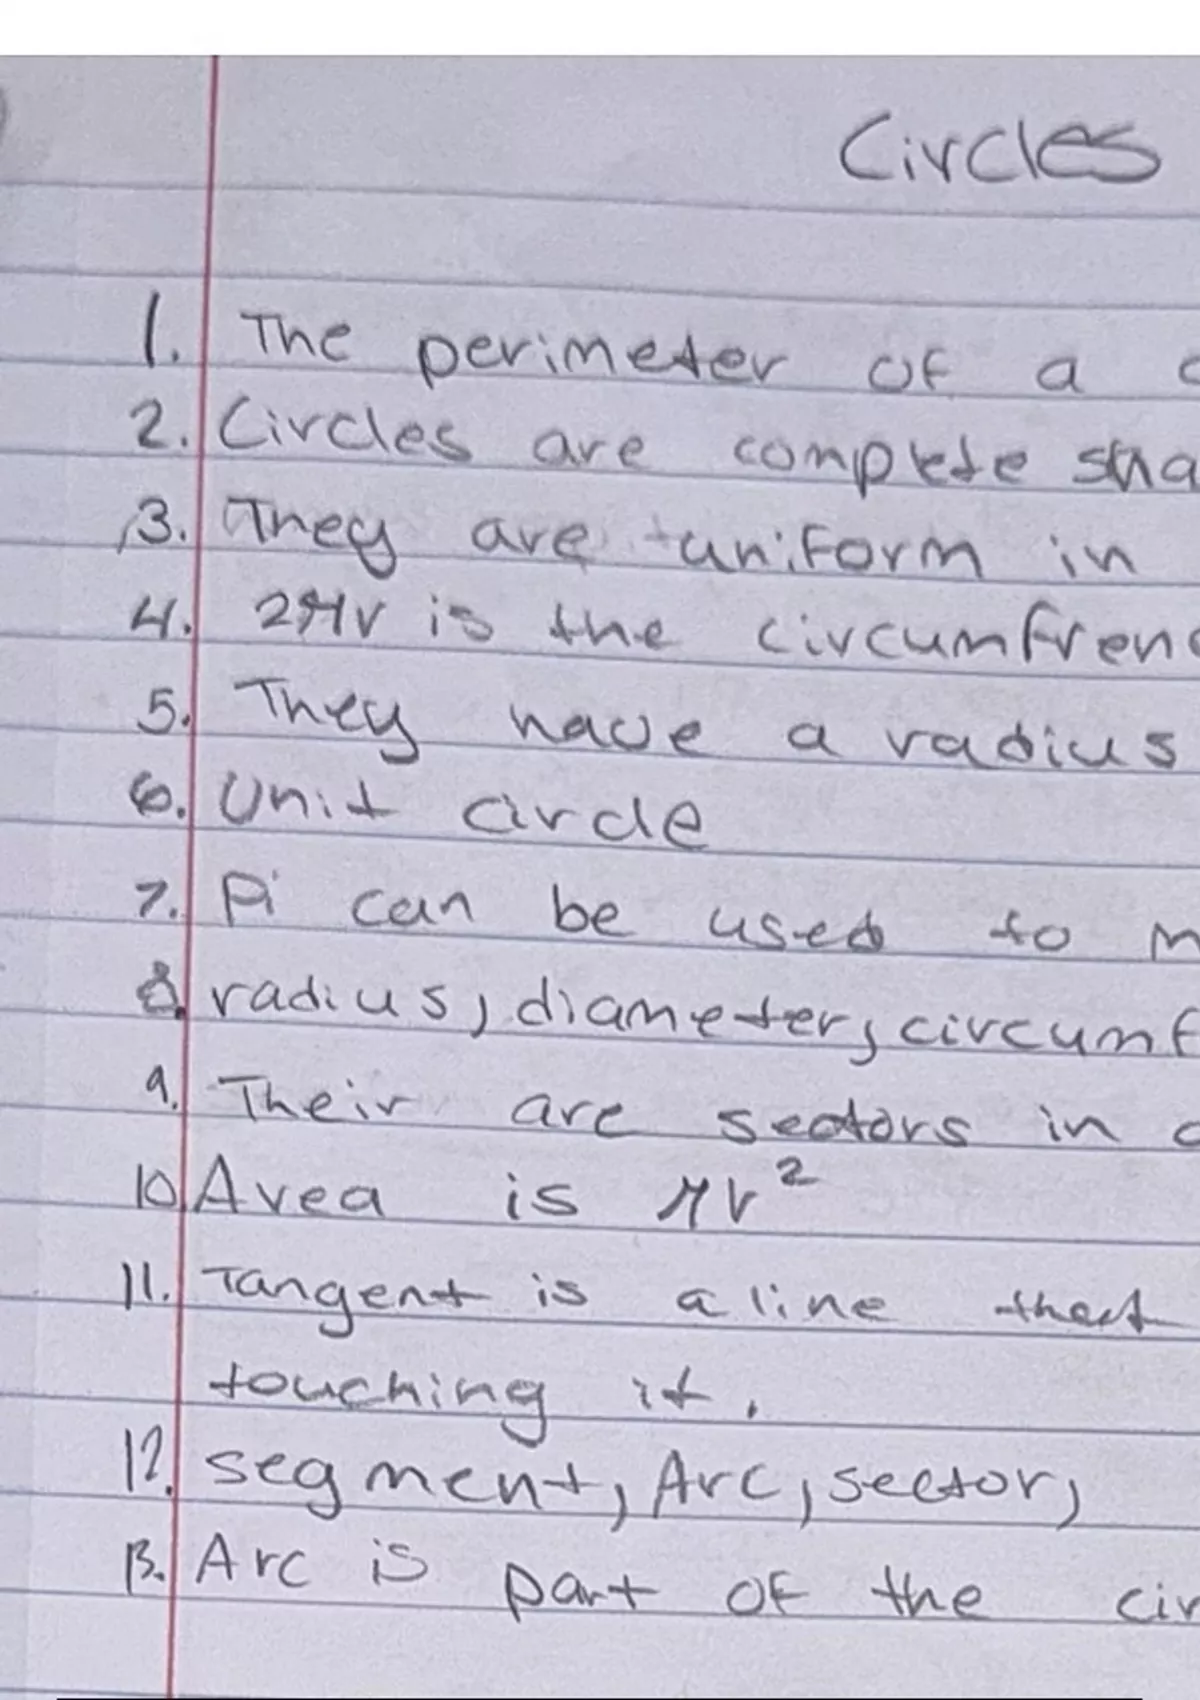 Circles
1. The perimeter of a
2. Circles are complete sha
3. They are uniform in
4. 2πr is the circumfrenc
5. They have a radius
6. Unit circle
7. Pi can be used to m
8. radius, diameter, circumf
9. Their are sectors in c
10. Area is πr²
11. Tangent is a line that
touching it.
12. segment, Arc, sector,
13. Arc is part of the cir